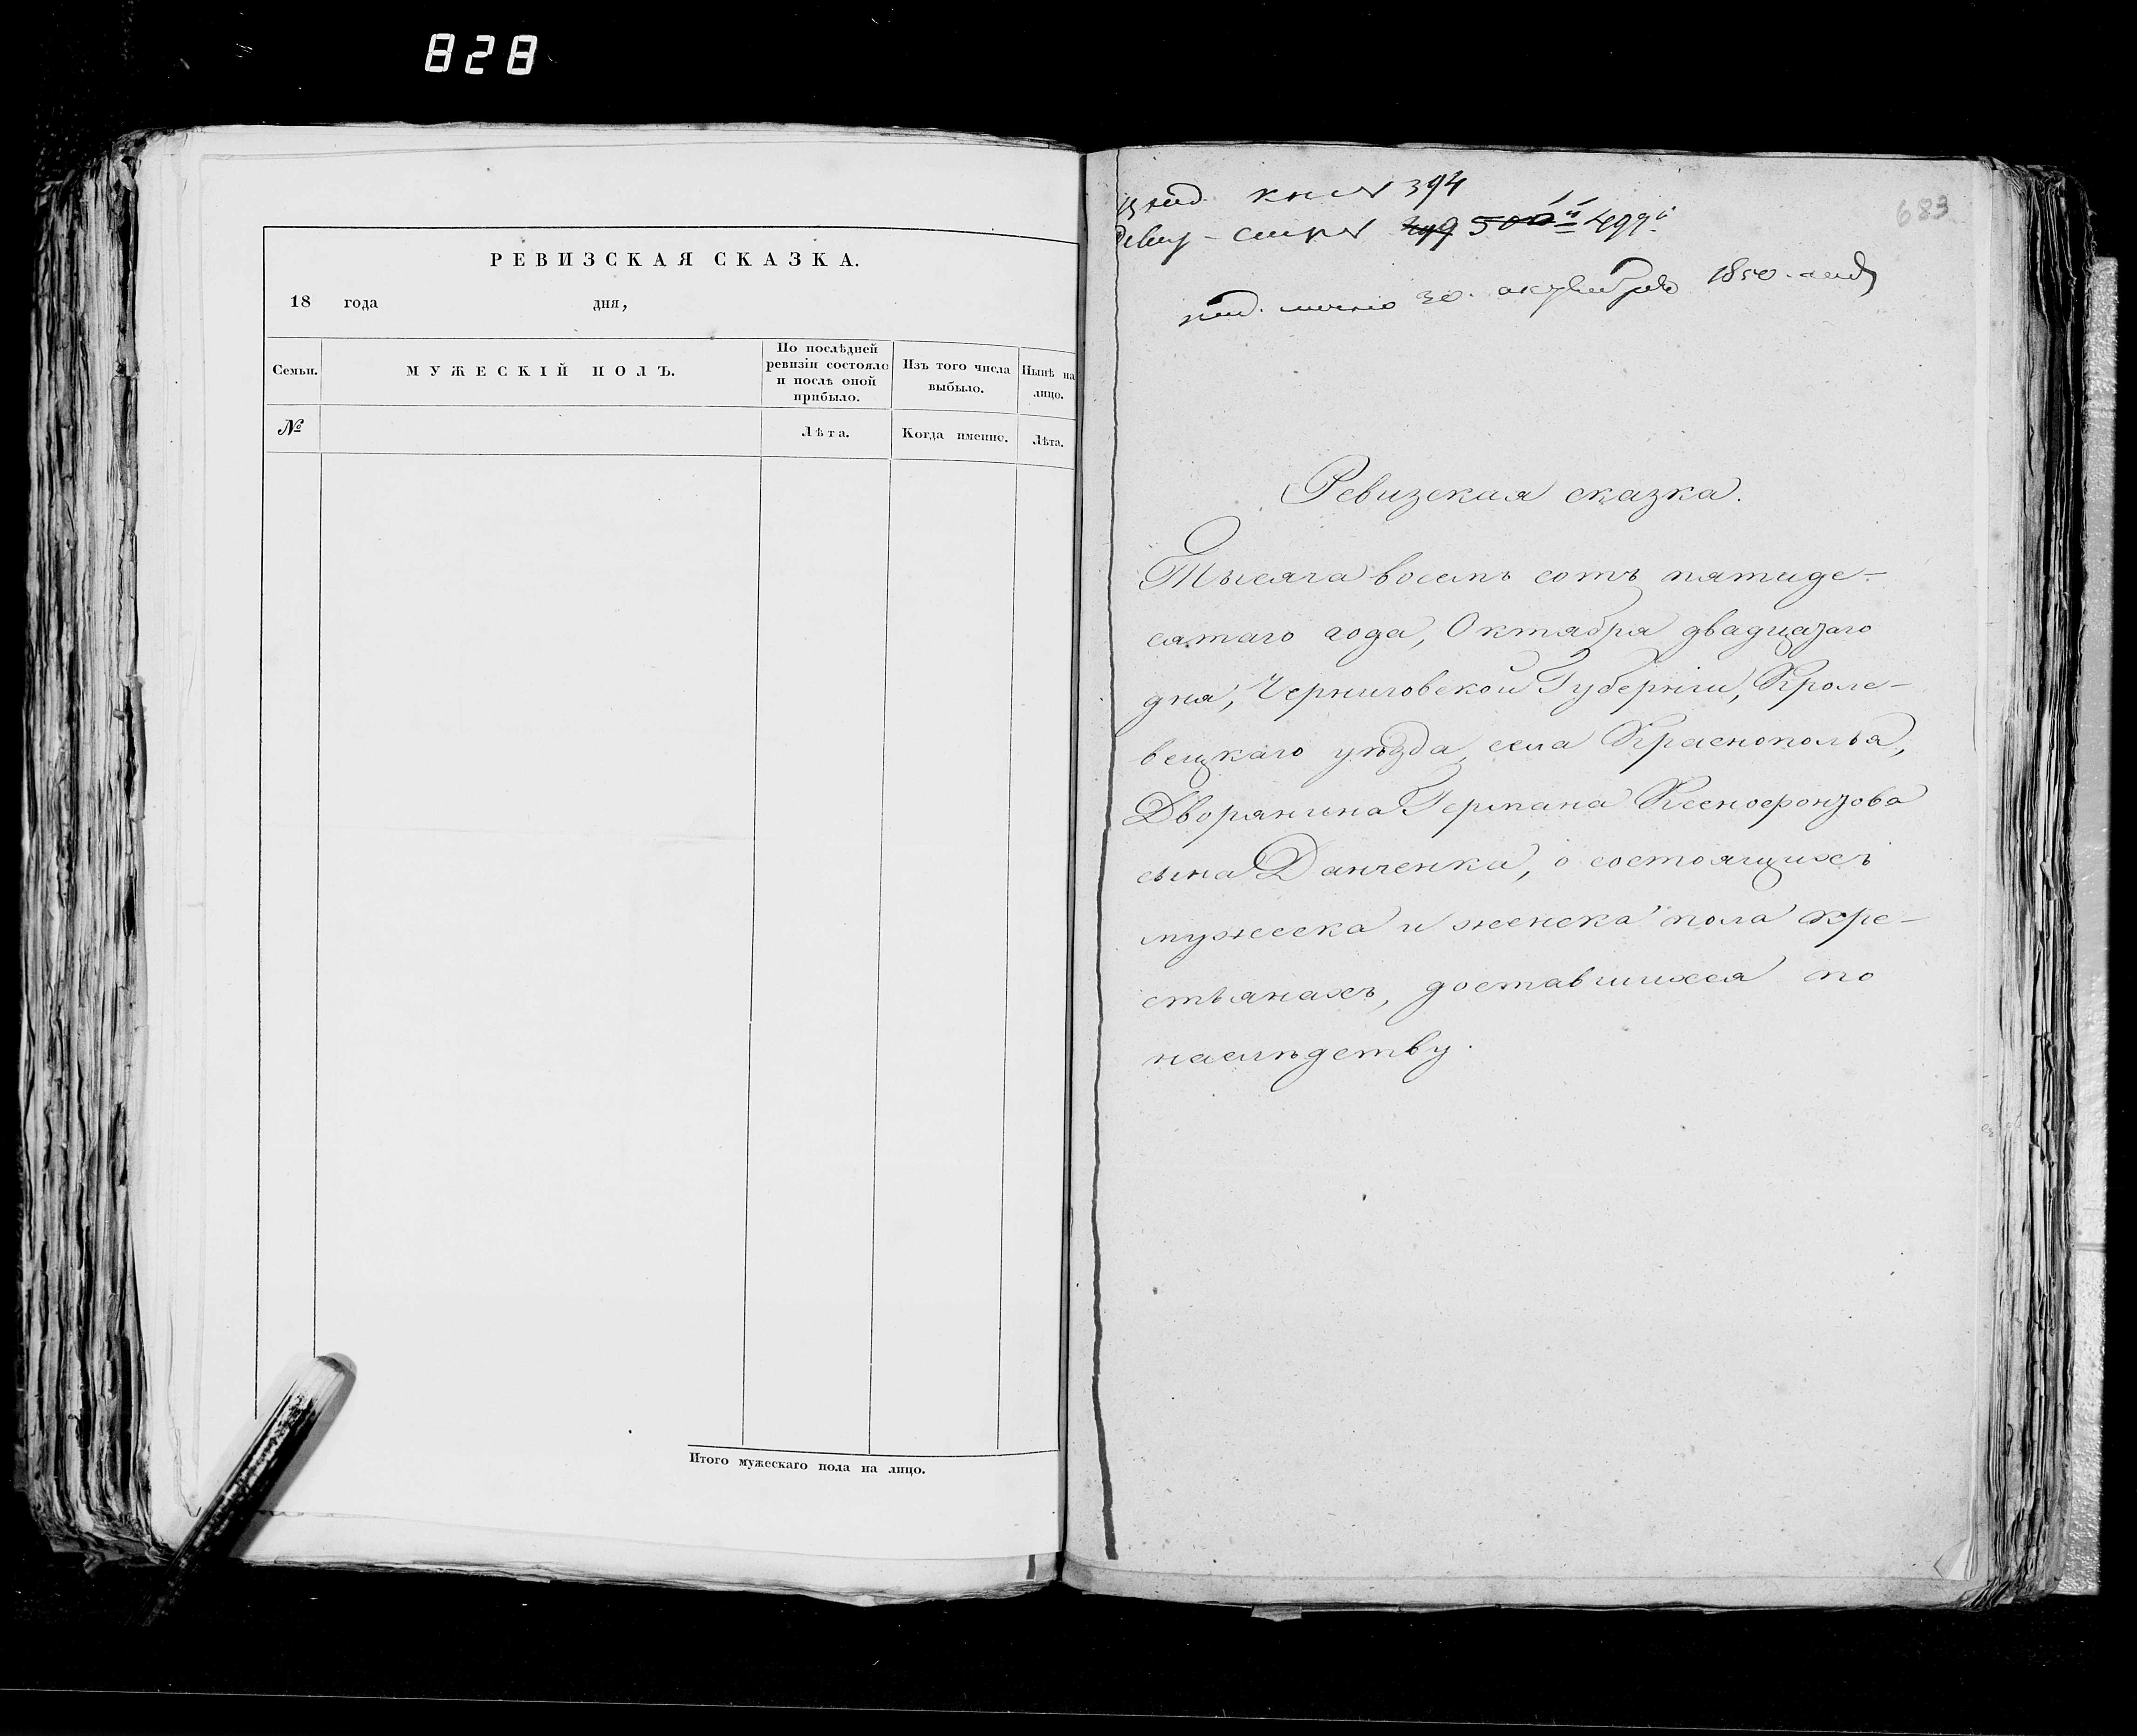 828
РЕВИЗСКАЯ СКАЗКА.
18 года дня,
Семьи.
МУЖЕСКІЙ ПОЛЪ.
По послѣдней
ревизіи состояло
и послѣ оной
прибыло.
Изъ того числа
выбыло.
Нынѣ на
лицо.
№
Лѣта.
Когда именно.
Лѣта.
Итого мужескаго пола на лицо.
394
500 499
30. октября 1850.
683
Ревизская сказка.
Тысяча восемь сотъ пятиде-
сятаго года, Октября двадцатаго
дня, Черниговской Губерніи, Кроле-
вецкаго уѣзда села Краснополья,
Дворянина Германа Ксенофонтова
сына Данченка, о состоящихъ
мужеска и женска пола кре-
стьянахъ, доставшихся по
наслѣдству.